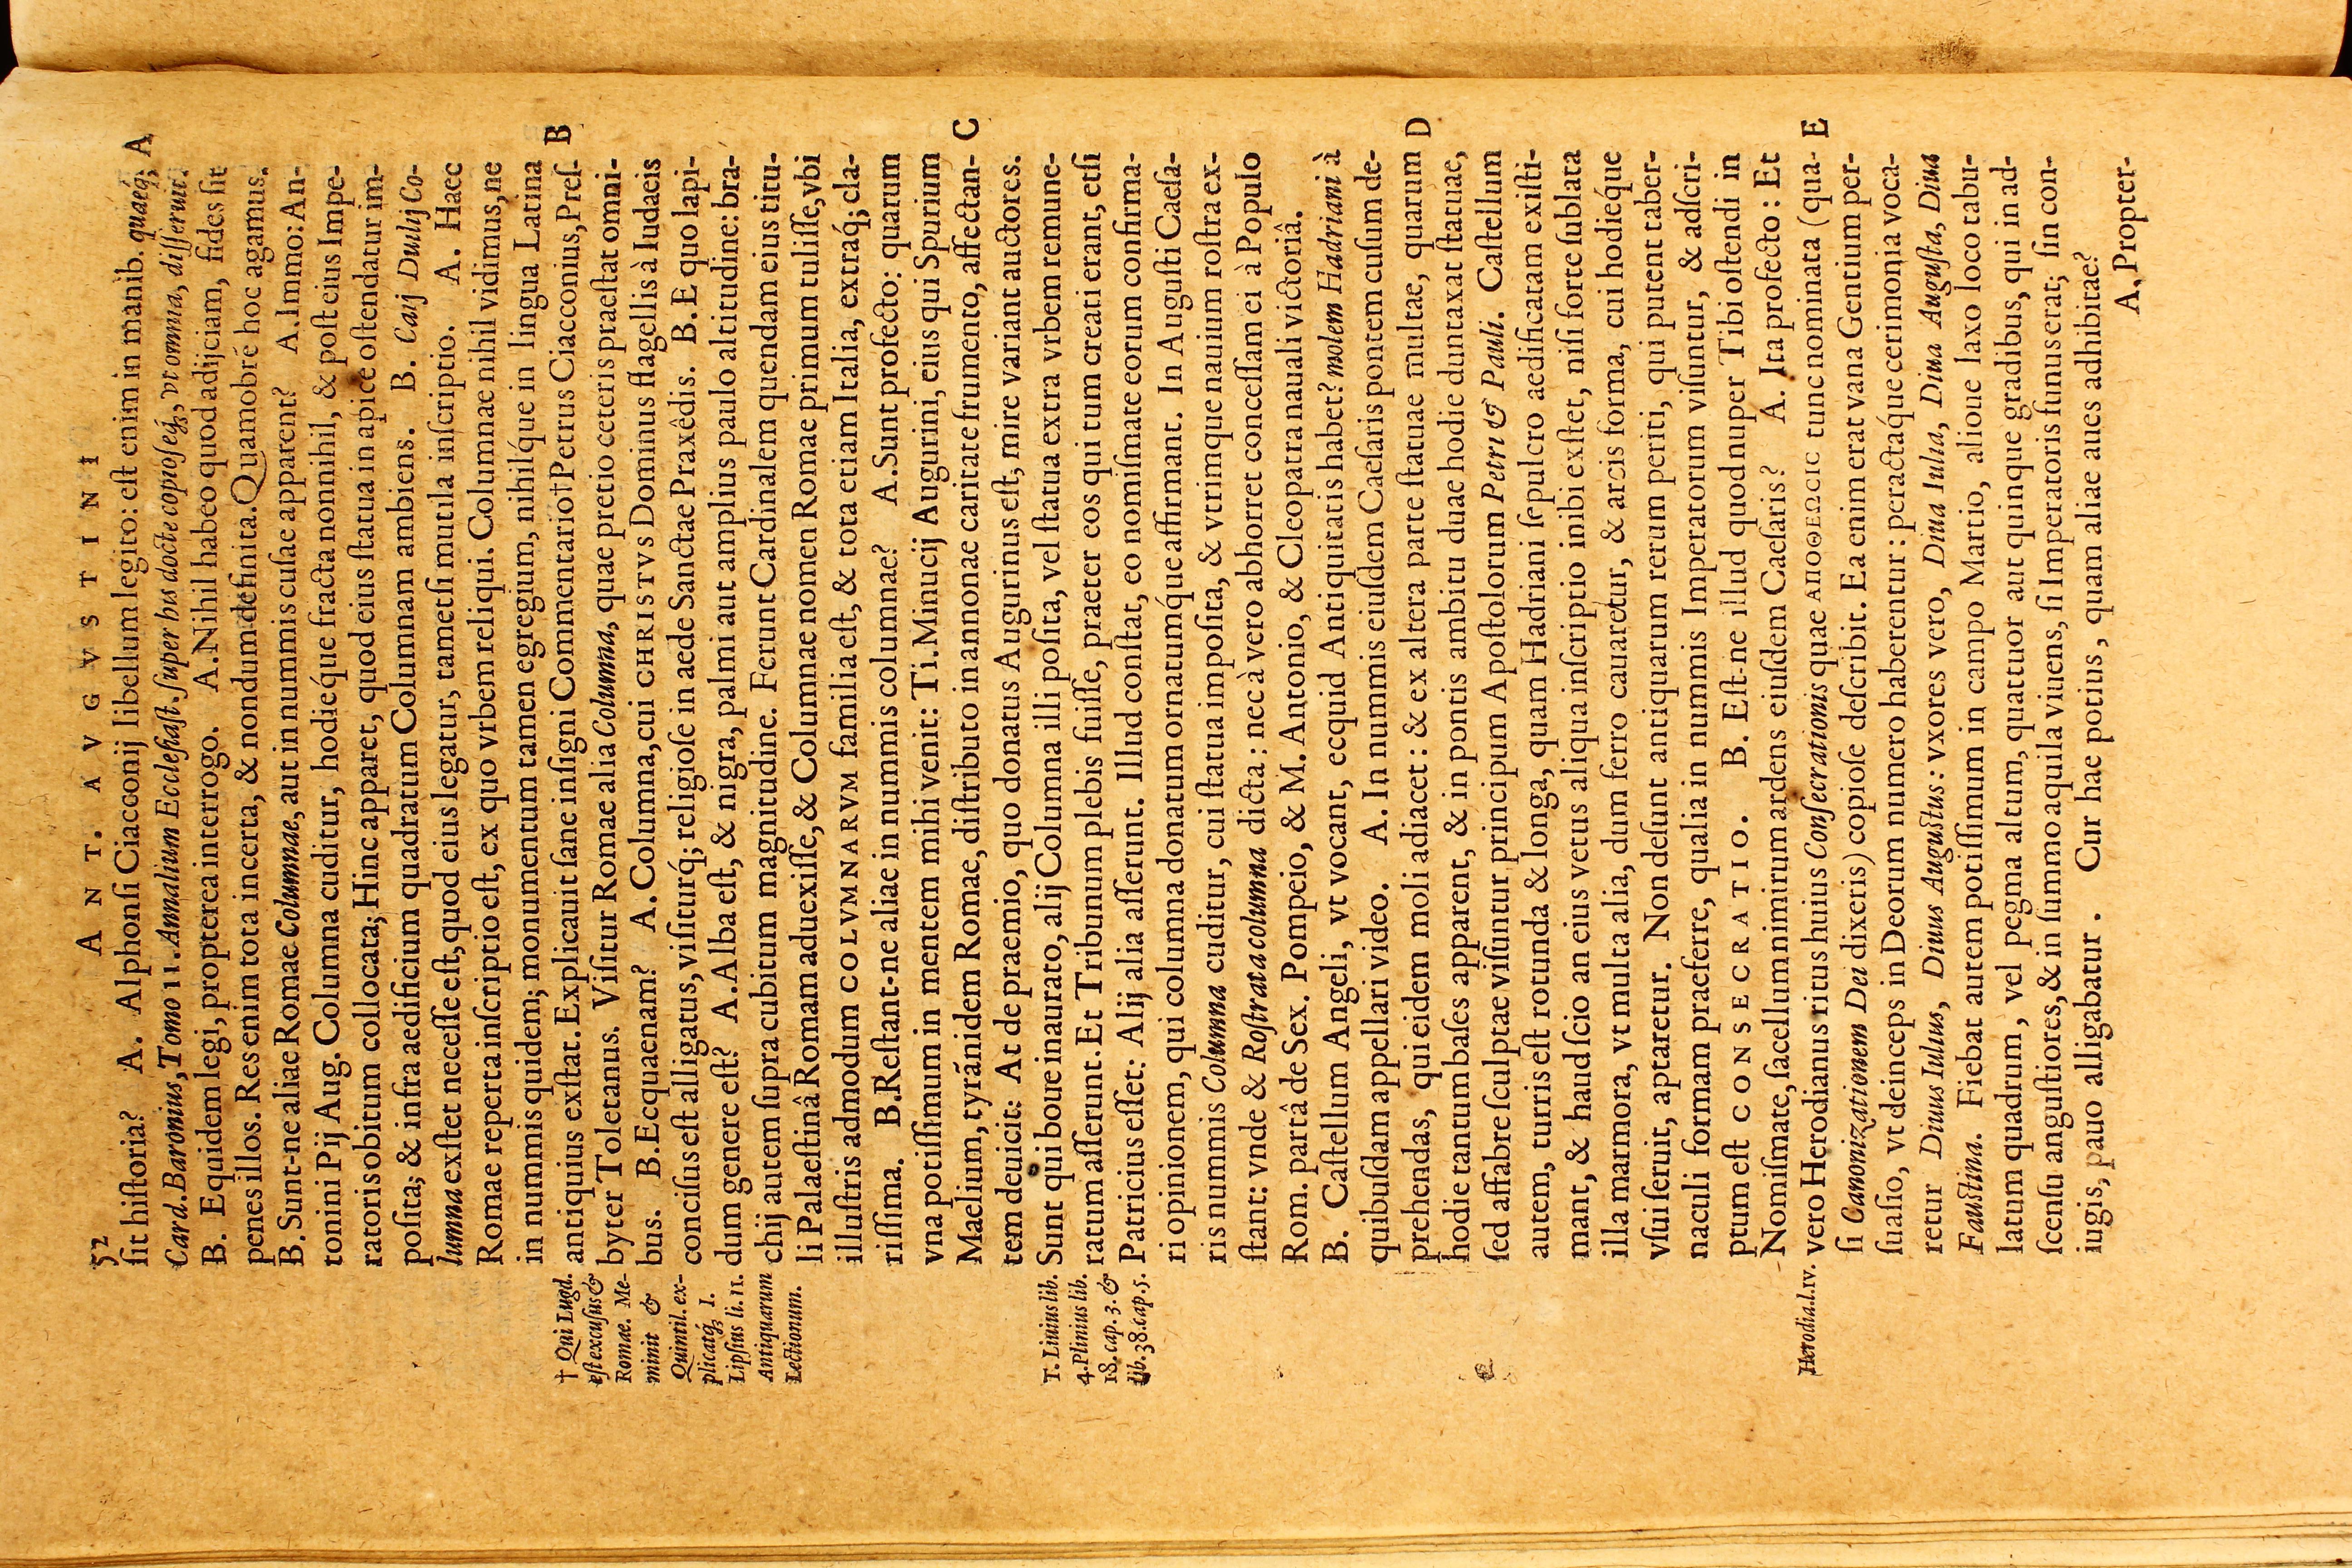 52 ANT. AVGVSTINI
ſit hiſtoria? A. Alphonſi Ciacconij libellum legito: eſt enim in manib. quaeq́; A
Card. Baronius, Tomo 11. Annalium Eccleſiaſt. ſuper his doctè copioſeq́;, vt omnia, diſſeruit.
B. Equidem legi, propterea interrogo. A. Nihil habeo quod adijciam, fides ſit
penes illos. Res enim tota incerta, & nondum definita. Quamobrē hoc agamus.
B. Sunt-ne aliae Romae Columnae, aut in nummis cuſae apparent? A. Immo: An-
tonini Pij Aug. Columna cuditur, hodieq́ue fracta nonnihil, & poſt eius Impe-
ratoris obitum collocata; Hinc apparet, quod eius ſtatua in apice oſtendatur im-
poſita; & infra aedificium quadratum Columnam ambiens. B. Caij Duilij Co-
lumna exſtet neceſſe eſt, quod eius legatur, tametſi mutila inſcriptio. A. Haec
Romae reperta inſcriptio eſt, ex quo vrbem reliqui. Columnae nihil vidimus, ne
in nummis quidem; monumentum tamen egregium, nihilq́ue in lingua Latina
antiquius exſtat. Explicauit ſane inſigni Commentario † Petrus Ciacconius, Preſ- B
byter Toletanus. Viſitur Romae alia Columna, quae pretio ceteris praeſtat omni-
bus. B. Ecquaenam? A. Columna, cui CHRISTVS Dominus flagellis à Iudaeis
conciſus eſt alligatus, viſiturq́; religioſe in aede Sanctae Praxêdis. B. E quo lapi-
dum genere eſt? A. Alba eſt, & nigra, palmi aut amplius paulo altitudine: bra-
chij autem ſupra cubitum magnitudine. Ferunt Cardinalem quendam eius titu-
li Palaeſtinâ Romam aduexiſſe, & Columnae nomen Romae primum tuliſſe, vbi
illuſtris admodum COLVMNARVM familia eſt, & tota etiam Italia, extraq́; cla-
riſſima. B. Reſtant-ne aliae in nummis columnae? A. Sunt profecto: quarum
vna potiſſimum in mentem mihi venit: Ti. Minucij Augurini, eius qui Spurium
Maelium, tyrānidem Romae, diſtributo in annonae caritate frumento, affectan- C
tem deuicit: At de praemio, quo donatus Augurinus eſt, mire variant auctores.
Sunt qui boue inaurato, alij Columna illi poſita, vel ſtatua extra vrbem remune-
ratum aſſerunt. Et Tribunum plebis fuiſſe, praeter eos qui tum creati erant, etſi
Patricius eſſet: Alij alia aſſerunt. Illud conſtat, eo nomiſmate eorum confirma-
ri opinionem, qui columna donatum ornatumq́ue affirmant. In Auguſti Caeſa-
ris nummis Columna cuditur, cui ſtatua impoſita, & vtrimque nauium roſtra ex-
ſtant: vnde & Roſtrata columna dicta: nec à vero abhorret conceſſam ei à Populo
Rom. partâ de Sex. Pompeio, & M. Antonio, & Cleopatra nauali victoriâ.
B. Caſtellum Angeli, vt vocant, ecquid Antiquitatis habet? molem Hadriani à
quibuſdam appellari video. A. In nummis eiuſdem Caeſaris pontem cuſum de-
prehendas, qui eidem moli adiacet: & ex altera parte ſtatuae multae, quarum D
hodie tantum baſes apparent, & in pontis ambitu duae hodie duntaxat ſtatuae,
ſed affabre ſculptae viſuntur principum Apoſtolorum Petri & Pauli. Caſtellum
autem, turris eſt rotunda & longa, quam Hadriani ſepulcro aedificatam exiſti-
mant, & haud ſcio an eius vetus aliqua inſcriptio inibi exſtet, niſi forte ſublata
illa marmora, vt multa alia, dum ferro cauaretur, & arcis forma, cui hodieq́ue
vſui ſeruit, aptaretur. Non deſunt antiquarum rerum periti, qui putent taber-
naculi formam praeferre, qualia in nummis Imperatorum viſuntur, & adſcri-
ptum eſt CONSECRATIO. B. Eſt-ne illud quod nuper Tibi oſtendi in
Nomiſmate, ſacellum nimirum ardens eiuſdem Caeſaris? A. Ita profecto: Et
vero Herodianus ritus huius Conſecrationis quae ΑΠΟΘΕΩCΙC tunc nominata (qua- E
ſi Canonizationem Dei dixeris) copioſe deſcribit. Ea enim erat vana Gentium per-
ſuaſio, vt deinceps in Deorum numero haberentur: peractaq́ue cerimonia voca-
retur Diuus Iulus, Diuus Auguſtus: vxores vero, Diua Iulia, Diua Auguſta, Diua
Fauſtina. Fiebat autem potiſſimum in campo Martio, alioue laxo loco tabu-
latum quadrum, vel pegma altum, quattuor aut quinque gradibus, qui in ad-
ſcenſu anguſtiores, & in ſummo aquila viuens, ſi Imperatoris funus erat; ſin con-
iugis, pauo alligabatur. Cur hae potius, quam aliae aues adhibitae?
A. Propter-
† Qui Lugd.
eſt excuſus &
Romae. Me-
minit &
Quintil. ex-
plicatq́; I.
Lipſius li. II.
Antiquarum
Lectionum.
T. Liuius lib.
4. Plinius lib.
18. cap. 3. &
lib. 38. cap. 5.
Herodia. l. IV.